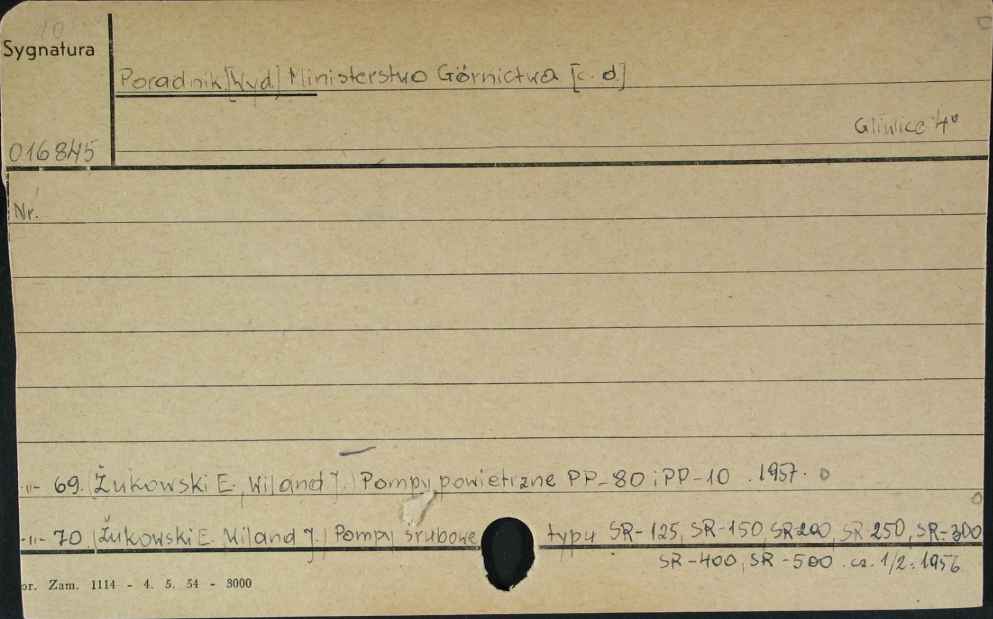 10
Sygnatura
Poradnik [Wyd.] Ministerstwo Górnictwa [c. d.]
Gliwice 4°
016845
Nr.
-"- 69. (Żukowski E., Wiland J.) Pompy powietrzne PP-80 i PP-10 . 1957.
-"- 70 (Żukowski E. Wiland J.) Pompy śrubowe typu SR-125, SR-150, SR 200, SR 250, SR-300
SR-400, SR-500 . cz. 1/2. 1956
or. Zam. 1114 - 4. 5. 54 - 3000